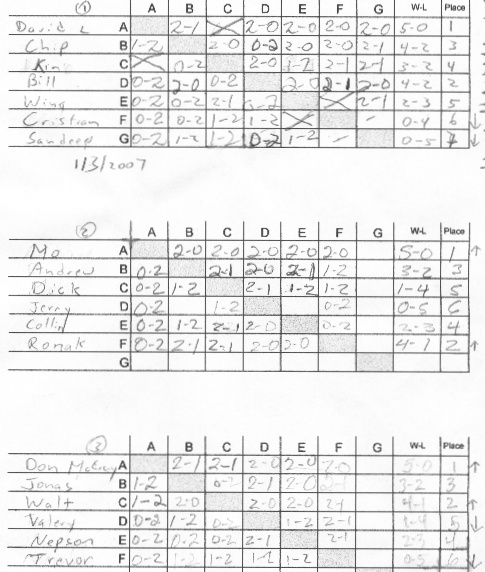 1 A B C D E F G W-L Place
David L A 2-1 2-0 2-0 2-0 2-0 5-0 1
Chip B 1-2 2-0 0-2 2-0 2-0 2-1 4-2 3
King C 0-2 2-0 1-2 2-1 2-1 3-2 4
Bill D 0-2 2-0 0-2 2-0 2-1 2-0 4-2 2
Wing E 0-2 0-2 2-1 0-2 2-1 2-3 5
Cristian F 0-2 0-2 1-2 1-2 - 0-4 6 ↓
Sandeep G 0-2 1-2 1-2 0-2 1-2 - 0-5 7 ↓
1/3/2007
2 A B C D E F G W-L Place
Mo A 2-0 2-0 2-0 2-0 2-0 5-0 1 ↑
Andrew B 0-2 2-1 2-0 2-1 1-2 3-2 3
Dick C 0-2 1-2 2-1 1-2 1-2 1-4 5
Jerry D 0-2 1-2 0-2 0-5 6
Collin E 0-2 1-2 2-1 2-0 0-2 2-3 4
Ronak F 0-2 2-1 2-1 2-0 2-0 4-1 2 ↑
G
3 A B C D E F G W-L Place
Don A 2-1 2-1 2-0 2-0 2-0 5-0 1 ↑
Jonas B 1-2 0-2 2-1 2-0 3-2 3
Walt C 1-2 2-0 2-0 2-0 2-1 4-1 2 ↑
Valery D 0-2 1-2 0-2 1-2 2-1 1-4 5 ↓
Nepson E 0-2 0-2 0-2 2-1 2-1 2-3 4
Trevor F 0-2 1-2 1-2 1-2 1-2 0-5 6 ↓